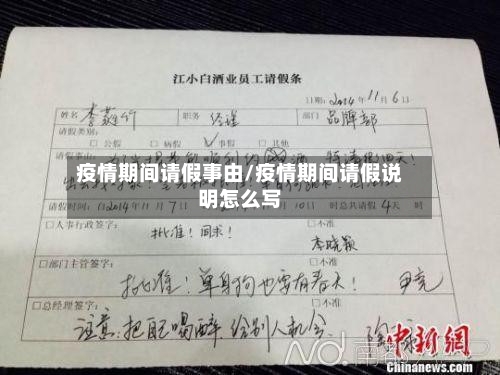 江小白酒业员工请假条
日期: 2014年11月6日
姓名 李蕤竹 职务 经理 部门 品牌部
请假类别:
□公假 □病假 ☑事假 □其他
请假事由:
疫情期间请假事由/疫情期间请假说
明怎么写
请假时间: 自2014年11月7日 10日 时总共请假4天 时
□人事行政签字: □不准
批准！同求！
李晓颖
□部门主管签字: □不准
批准！单身狗也要有春天！ 尹亮
□总经理签字: □不准
注意:把自己喝醉 给别人机会
中新网
WWW.CHINANEWS.COM